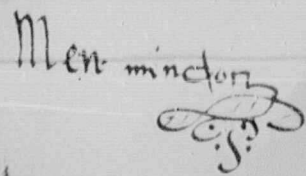 Men mincton